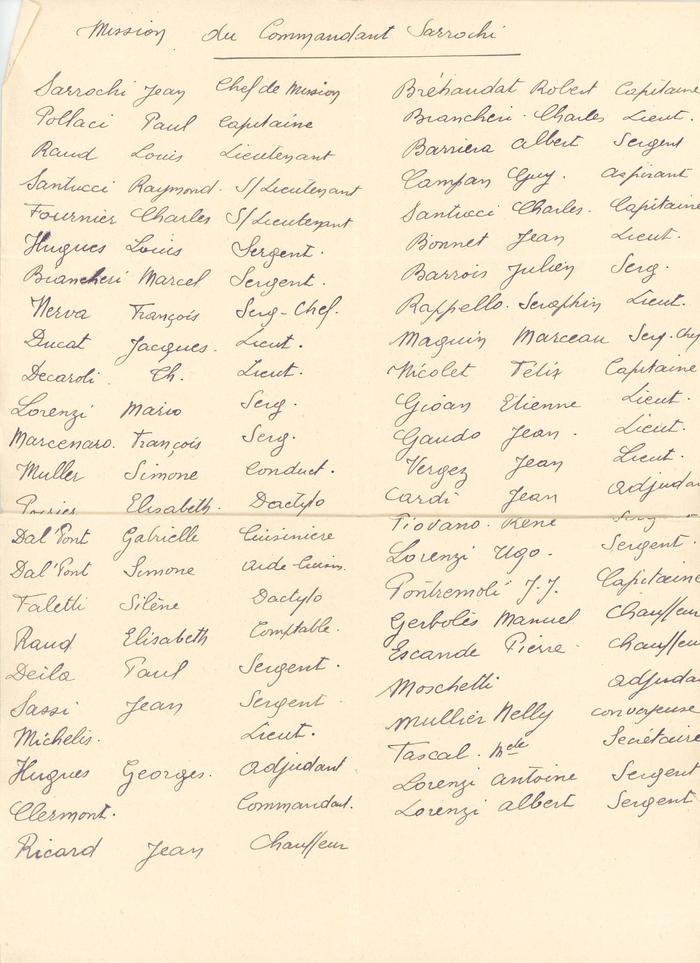 Mission du Commandant Sarrochi
Sarrochi Jean Chef de Mission
Pollaci Paul Capitaine
Raud Louis Lieutenant
Santucci Raymond. S/Lieutenant
Fournier Charles S/Lieutenant
Hugues Louis Sergent.
Biancheri Marcel Sergent.
Nerva François Serg-Chef.
Ducat Jacques. Lieut.
Decaroli. Ch. Lieut.
Lorenzi Mario Serg.
Marcenaro. François Serg.
Muller Simone Conduct.
Poirier Elisabeth. Dactylo
Dal'Pont Gabrielle Cuisiniere
Dal'Pont Simone Aide-Cuisin.
Faletti Silène Dactylo
Raud Elisabeth Comptable.
Deila Paul Sergent.
Sassi Jean Sergent.
Michelis. Lieut.
Hugues Georges. Adjudant
Clermont. Commandant.
Ricard Jean Chauffeur
Bréhaudat Robert Capitaine
Biancheri. Charles Lieut.
Barriera Albert Sergent
Campan Guy. Aspirant
Santucci Charles. Capitaine
Bonnet Jean Lieut.
Barrois Julien Serg.
Rappello. Seraphin Lieut.
Maguin Marceau Serg.Chef
Nicolet Félix Capitaine
Gioan Etienne Lieut.
Gaudo Jean. Lieut.
Vergez Jean Lieut.
Cardi Jean Adjudan
Piovano. René Serg
Lorenzi Ugo. Sergent.
Pontremoli J.J. Capitaine
Gerbolès Manuel Chauffeur
Escande Pierre. Chauffeur
Moschetti Adjudan
Mullier Nelly Convoyeuse
Pascal. Melle Secrétaire
Lorenzi Antoine Sergent
Lorenzi Albert Sergent